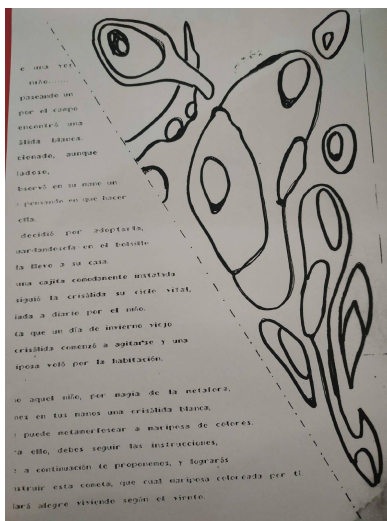 e una vez
niño......
paseando un
por el campo
encontró una
álida blanca.
cionado, aunque
dadoso,
bservó en su mano un
pensando en que hacer
ella.
decidió por adoptarla,
uardandosela en el bolsillo
la llevo a su casa.
una cajita comodamente instalada
siguió la crisálida su ciclo vital,
iada a diario por el niño.
ta que un día de invierno viejo
crisálida comenzó a agitarse y una
iposa voló por la habitación.
o aquel niño, por magia de la metafora,
nes en tus manos una crisálida blanca,
puede metamorfosear a mariposa de colores.
a ello, debes seguir las instrucciones,
e a continuación te proponemos, y lograrás
struir esta cometa, que cual mariposa coloreada por ti
lará alegre viviendo según el viento.